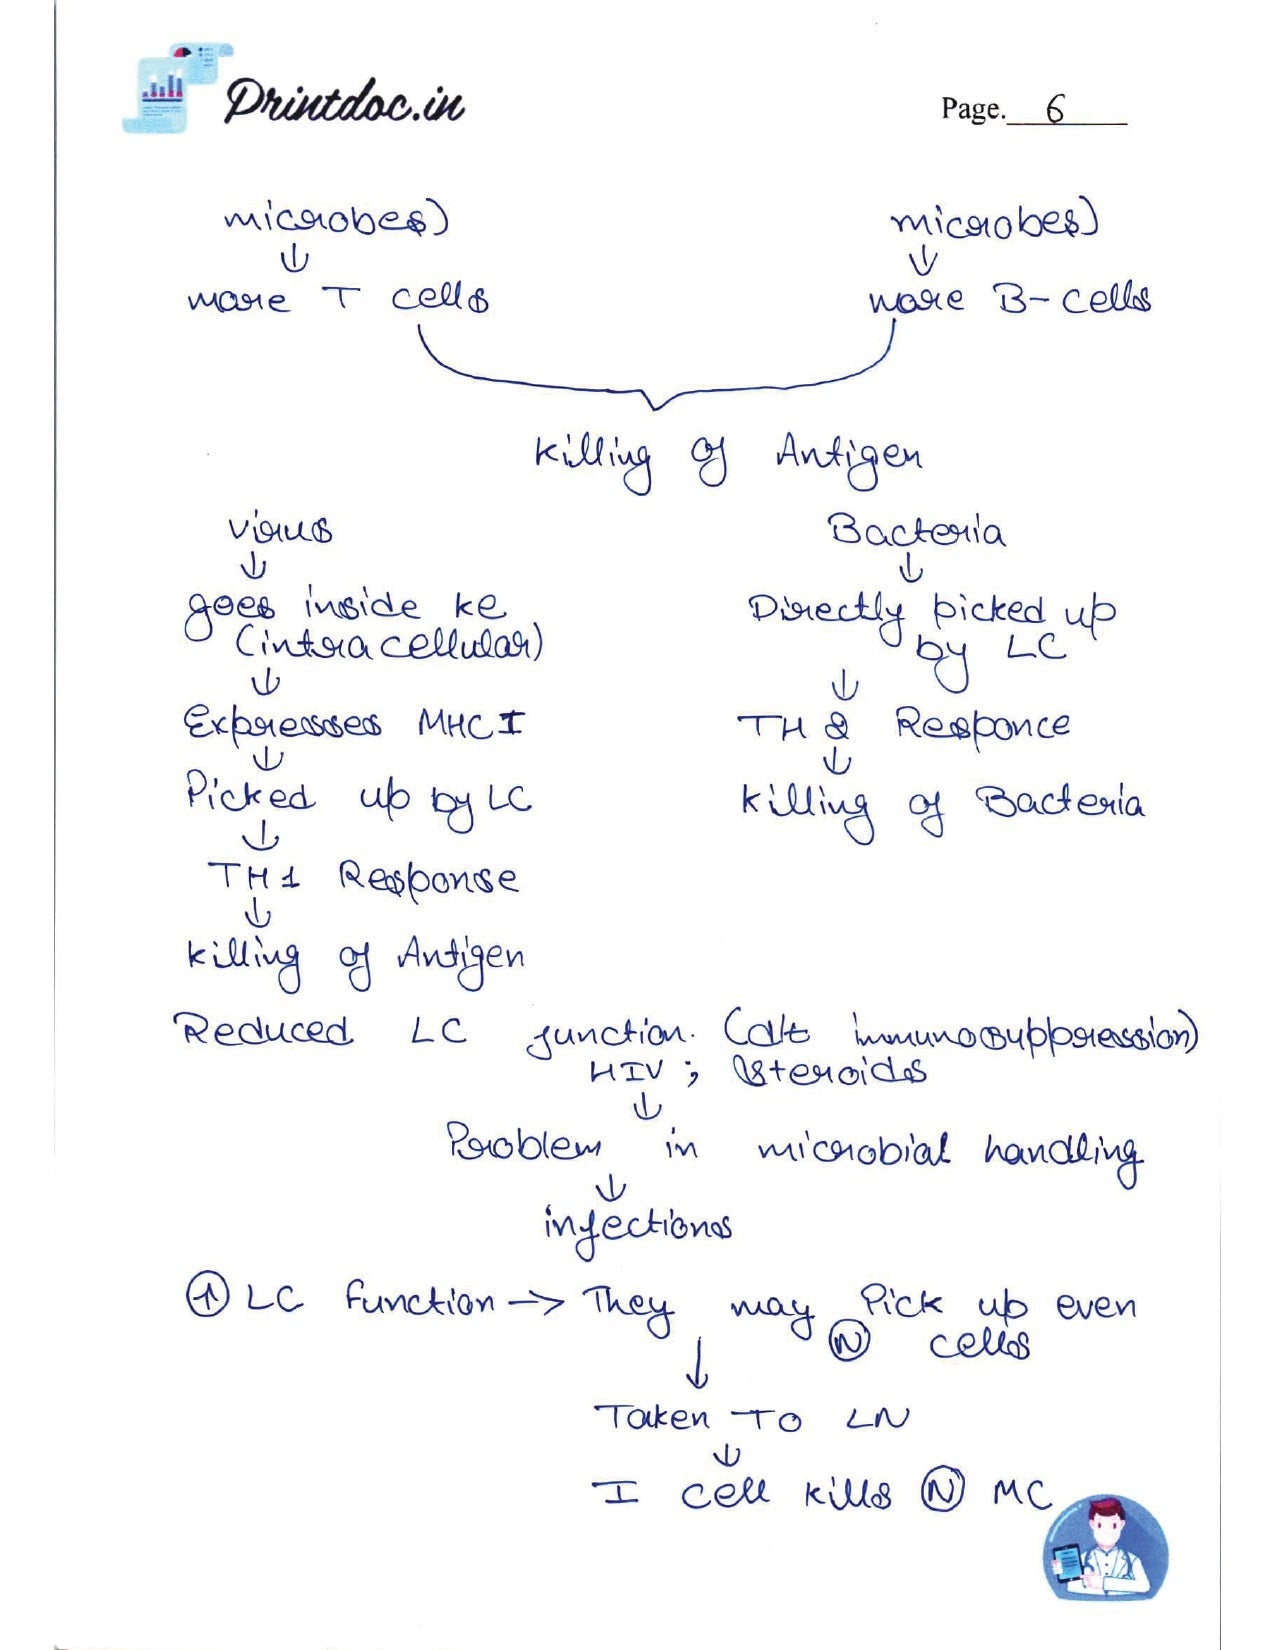 Printdoc.in
Page. 6
microbes) microbes)
↓ ↓
more T cells more B-cells
Killing of Antigen
virus Bacteria
↓ ↓
goes inside kc Directly picked up
(intracellular) by LC
↓ ↓
Expressses MHC I TH 2 Responce
↓ ↓
Picked up by LC Killing of Bacteria
↓
TH1 Response
↓
Killing of Antigen
Reduced LC function. (d/t immunosuppression)
HIV ; steroids
↓
Problem in microbial handling
↓
infections
↑ LC function → They may Pick up even
N cells
↓
Taken TO LN
↓
I cell kills N MC